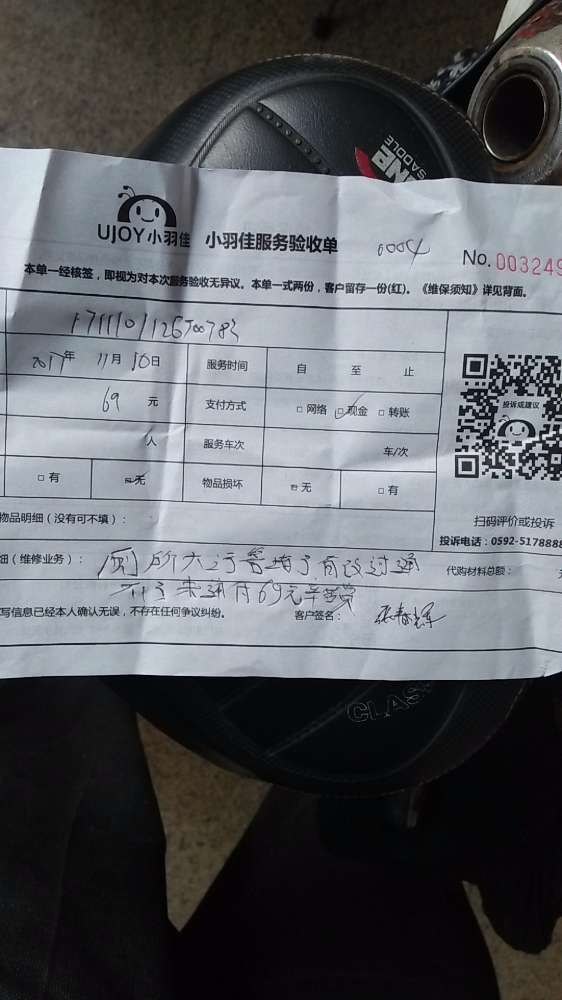 NA
SADDLE
UJOY小羽佳 小羽佳服务验收单 0004 No. 003249
本单一经核签，即视为对本次服务验收无异议。本单一式两份，客户留存一份(红)。《维保须知》详见背面。
2017年 11月10日 服务时间 自 至 止
69 元 支付方式 □ 网络 □ 现金 □ 转账
人 服务车次 车/次
□ 有 □ 无 物品损坏 □ 无 □ 有
投诉或建议
物品明细（没有可不填）：
扫码评价或投诉
投诉电话：0592-5178888
细（维修业务）： 厕所大 管堵了 有 过通
代购材料总额：
未通 69元
写信息已经本人确认无误，不存在任何争议纠纷。 客户签名：
CLAS